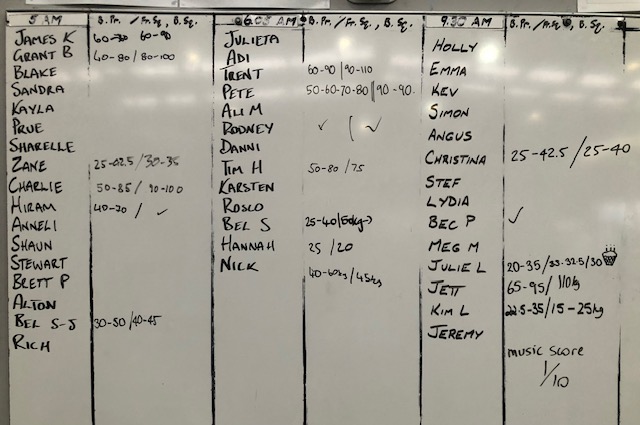 5 AM B. Pr. / Fr. Sq., B. Sq.
JAMES K 60-70 60-90
GRANT B 40-80 / 80-100
BLAKE
SANDRA
KAYLA
PRUE
SHARELLE
ZANE 25-42.5 / 30-35
CHARLIE 50-85 / 90-100
HIRAM 40-70 / ✓
ANNELI
SHAUN
STEWART
BRETT P
ALTON
BEL S-J 30-50 / 40-45
RICH
B. Pr. / Fr. Sq., B. Sq.
JULIETA
ADI
TRENT 60-90 | 90-110
PETE 50-60-70-80 || 90-90.
ALI M
RODNEY ✓ / ✓
DANNI
TIM H 50-80 / 75
KARSTEN
ROSCO
BEL S 25-40
HANNAH 25 / 20
NICK 40-60kg / 45kg
9.30 AM B. Pr. / Fr. Sq, B. Sq.
HOLLY
EMMA
KEV
SIMON
ANGUS
CHRISTINA 25-42.5 / 25-40
STEF
LYDIA
BEC P ✓
MEG M
JULIE L 20-35 / 33-32.5 / 30
JETT 65-95 / 110kg
KIM L 22.5-35 / 15-25kg
JEREMY
music score
1/10